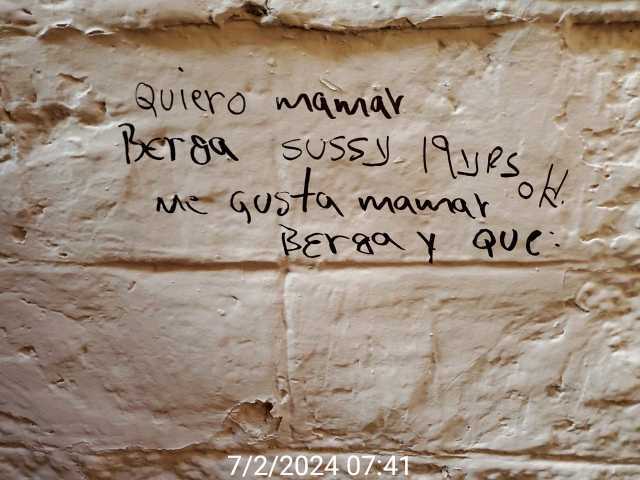 Quiero mamar
Berga sussy 19 yrs old.
Me gusta mamar
Berga y que:
7/2/2024 07:41